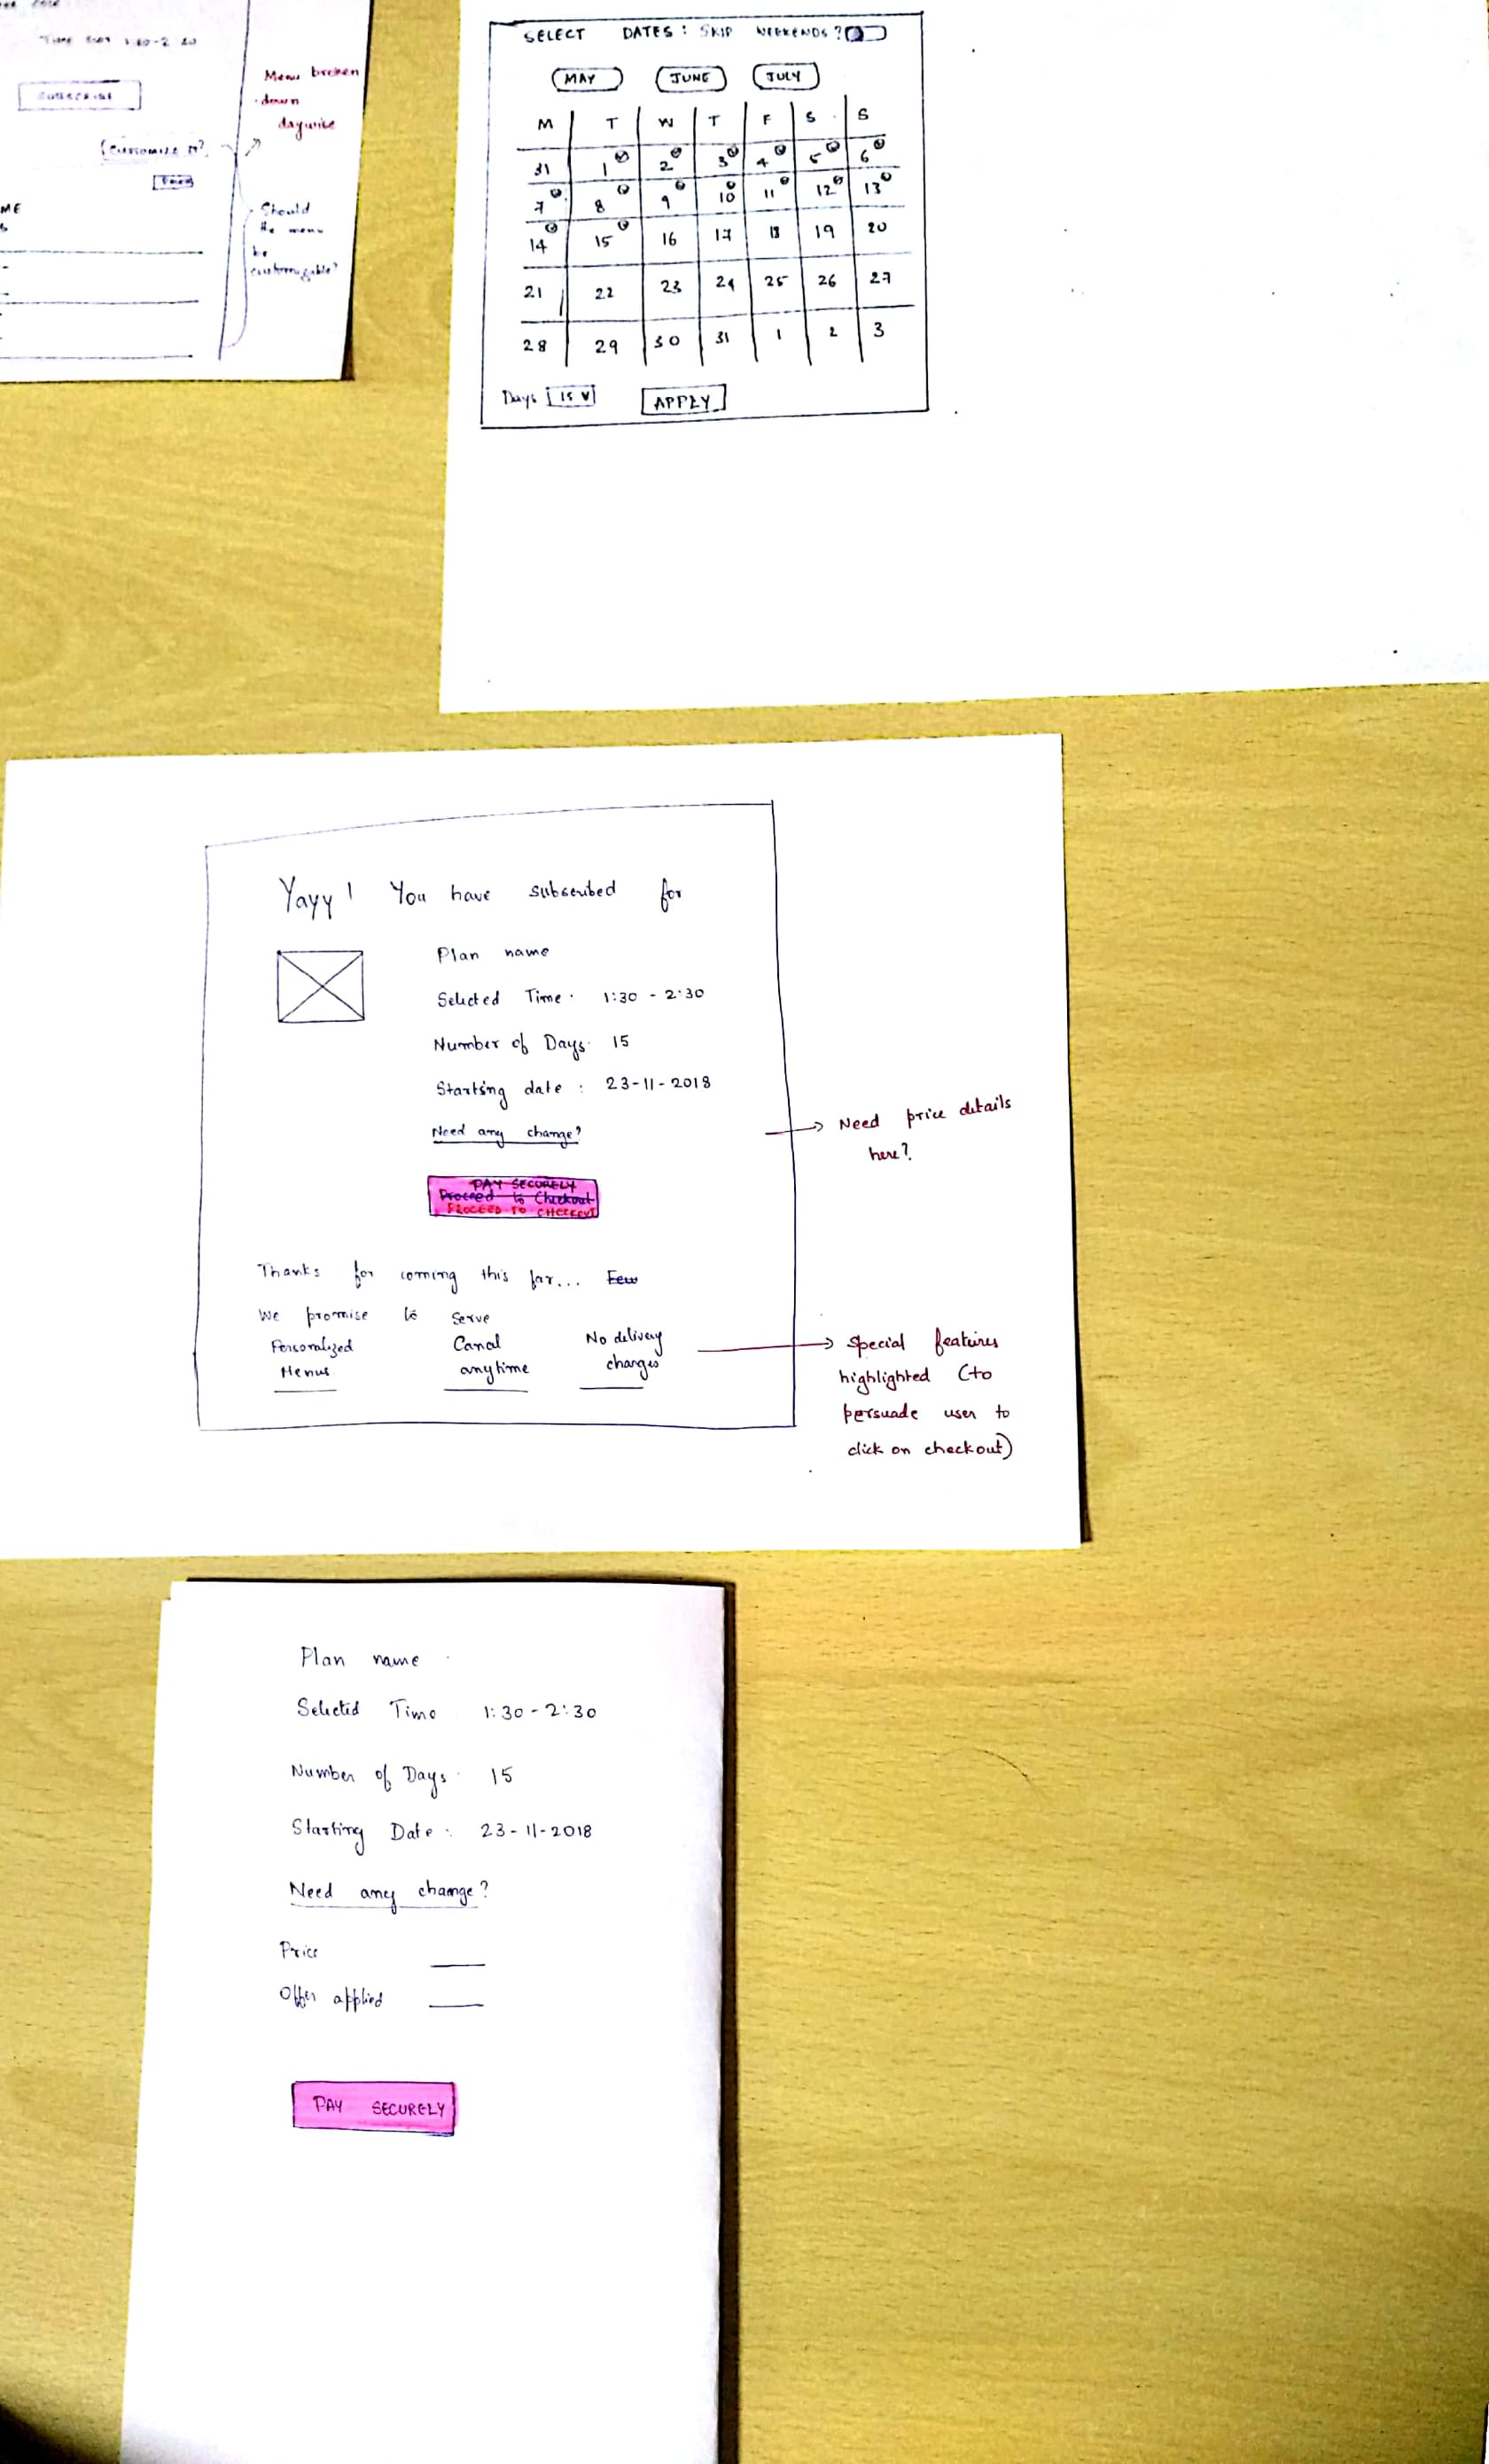 Menu broken
down
daywise
(Customize it?
Should
the menu
be
customizable?
ME
SELECT DATES: SKIP WEEKENDS?
MAY JUNE JULY
M T W T F S S
31 1 2 3 4 5 6
7 8 9 10 11 12 13
14 15 16 17 18 19 20
21 22 23 24 25 26 27
28 29 30 31 1 2 3
Days 15
APPLY
Yayy! You have subscribed for
Plan name
Selected Time: 1:30 - 2:30
Number of Days: 15
Starting date: 23-11-2018
Need any change?
PAY SECURELY
Proceed to Checkout
PROCEED TO CHECKOUT
Need price details
here?
Thanks for coming this far... Few
We promise to serve
Personalized
Menus
Cancel
anytime
No delivery
charges
Special features
highlighted (to
persuade user to
click on checkout)
Plan name
Selected Time 1:30 - 2:30
Number of Days: 15
Starting Date: 23-11-2018
Need any change?
Price
Offer applied
PAY SECURELY